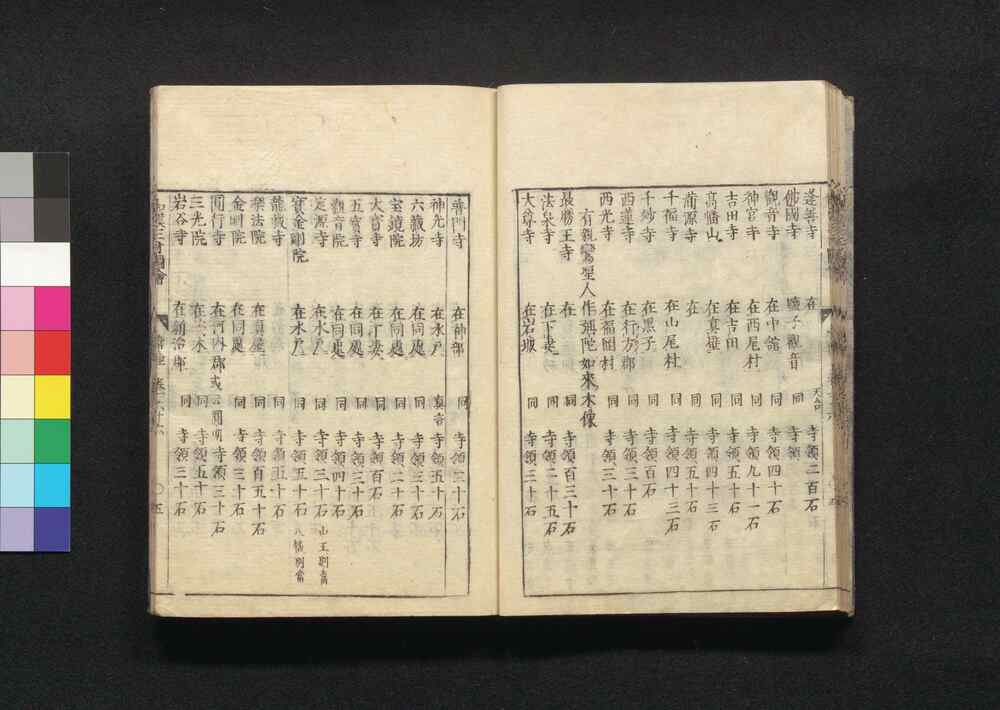 逢善寺 在 天台 寺領二百石
佛國寺 同 寺領
觀音寺 在中舘 同 寺領四十石
神宮寺 在西尾村 同 寺領九十一石
吉田寺 在吉田 同 寺領五十石
髙幡山 在真壁 同 寺領四十三石
蒲源寺 在 同 寺領五十石
千福寺 在山尾村 同 寺領四十三石
千妙寺 在黒子 同 寺領百石
西蓮寺 在行方郡 同 寺領三十石
西光寺 在福田村 同 寺領三十石
有親鸞聖人作彌陀如來木像
最勝王寺 在 同 寺領百三十石
法泉寺 在下妻 同 寺領二十五石
大尊寺 在岩城 同 寺領三十石
普門寺 在神郡 同 寺領三十石
神光寺 在水戸 真言 寺領五十石
六藏坊 在同處 同 寺領三十石
宝鏡院 在同處 同 寺領二十石
大寳寺 在下妻 同 寺領百石
五寳寺 在同處 同 寺領三十石
觀音院 在同處 同 寺領四十石
寺 在水戸 同 寺領三十石 山王別當
寳金剛院 在水戸 同 寺領五十石 八幡別當
龍藏寺 在同處 同 寺領五十石
樂法院 在真壁 同 寺領百五十石
金剛院 在同處 同 寺領三十石
圓行寺 在河内郡或云圓明 同 寺領三十石
三光院 在 同 寺領五十石
岩谷寺 在新治郡 同 寺領三十石